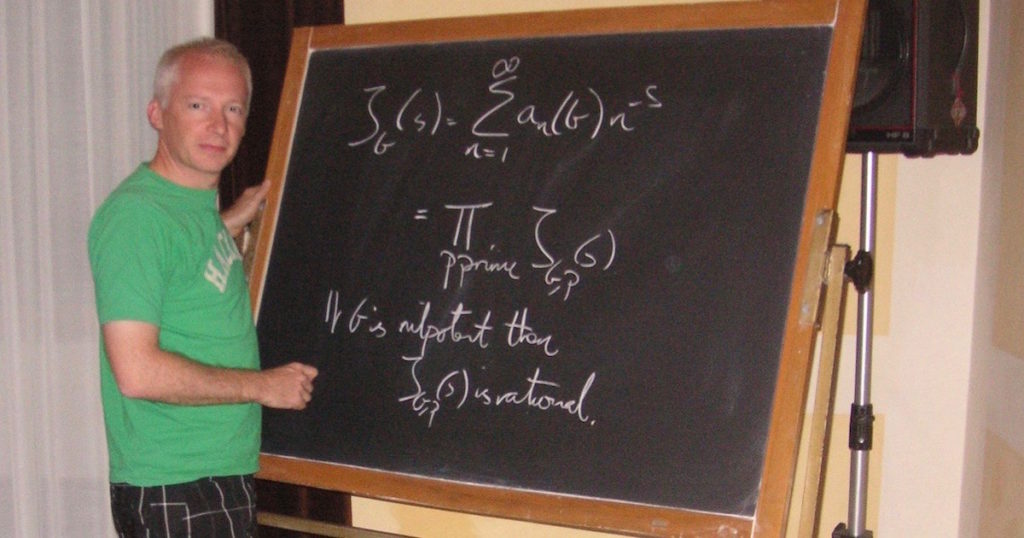 ζ_G(s) = ∑_{n=1}^{∞} a_n(G) n^{-s}
= ∏_{p prime} ζ_{G,p}(s)
If G is nilpotent then
ζ_{G,p}(s) is rational.
HF 8